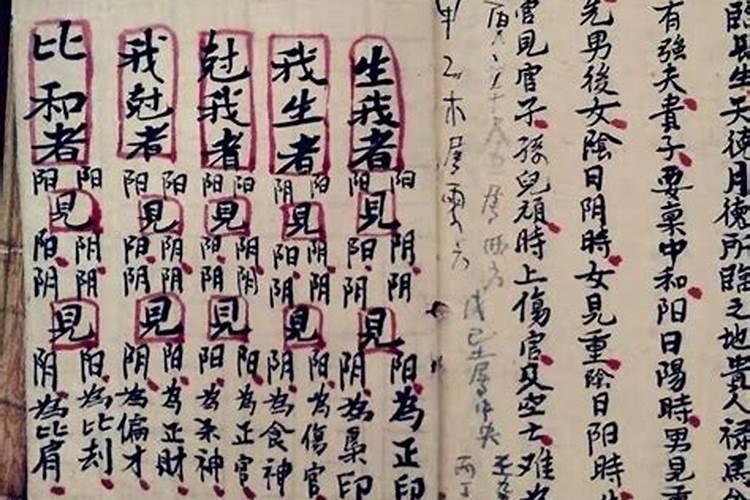 臨長生天德月德所臨之地貴人祿馬
有強夫貴子要稟中和阳日陽時男見
先男後女陰日阴時女見重陰日阳時
官見官子孫兒頑時上傷官又空亡難
戊己土屬中央
甲乙木屬
生我者
阳見阴阴見阳為正印
阳見阳阴見阴為梟印
我生者
阳見阴阴見阳為傷官
阳見阳阴見阴為食神
尅我者
阳見阴阴見阳為正官
阳見阳阴見阴為杀神
我尅者
阳見阴阴見阳為正財
阳見阳阴見阴為偏才
比和者
阳見阴阴見阳為比刦
阳見阳阴見阴為比肩